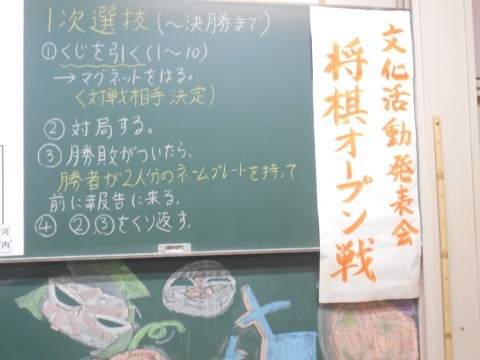 1次選抜(～決勝まで)
①くじを引く(1～10)
→マグネットをはる。
〈対戦相手決定〉
②対局する。
③勝敗がついたら、
勝者が2人分のネームプレートを持って
前に報告に来る。
④ ②、③をくり返す。
文化活動発表会
将棋オープン戦
河
内